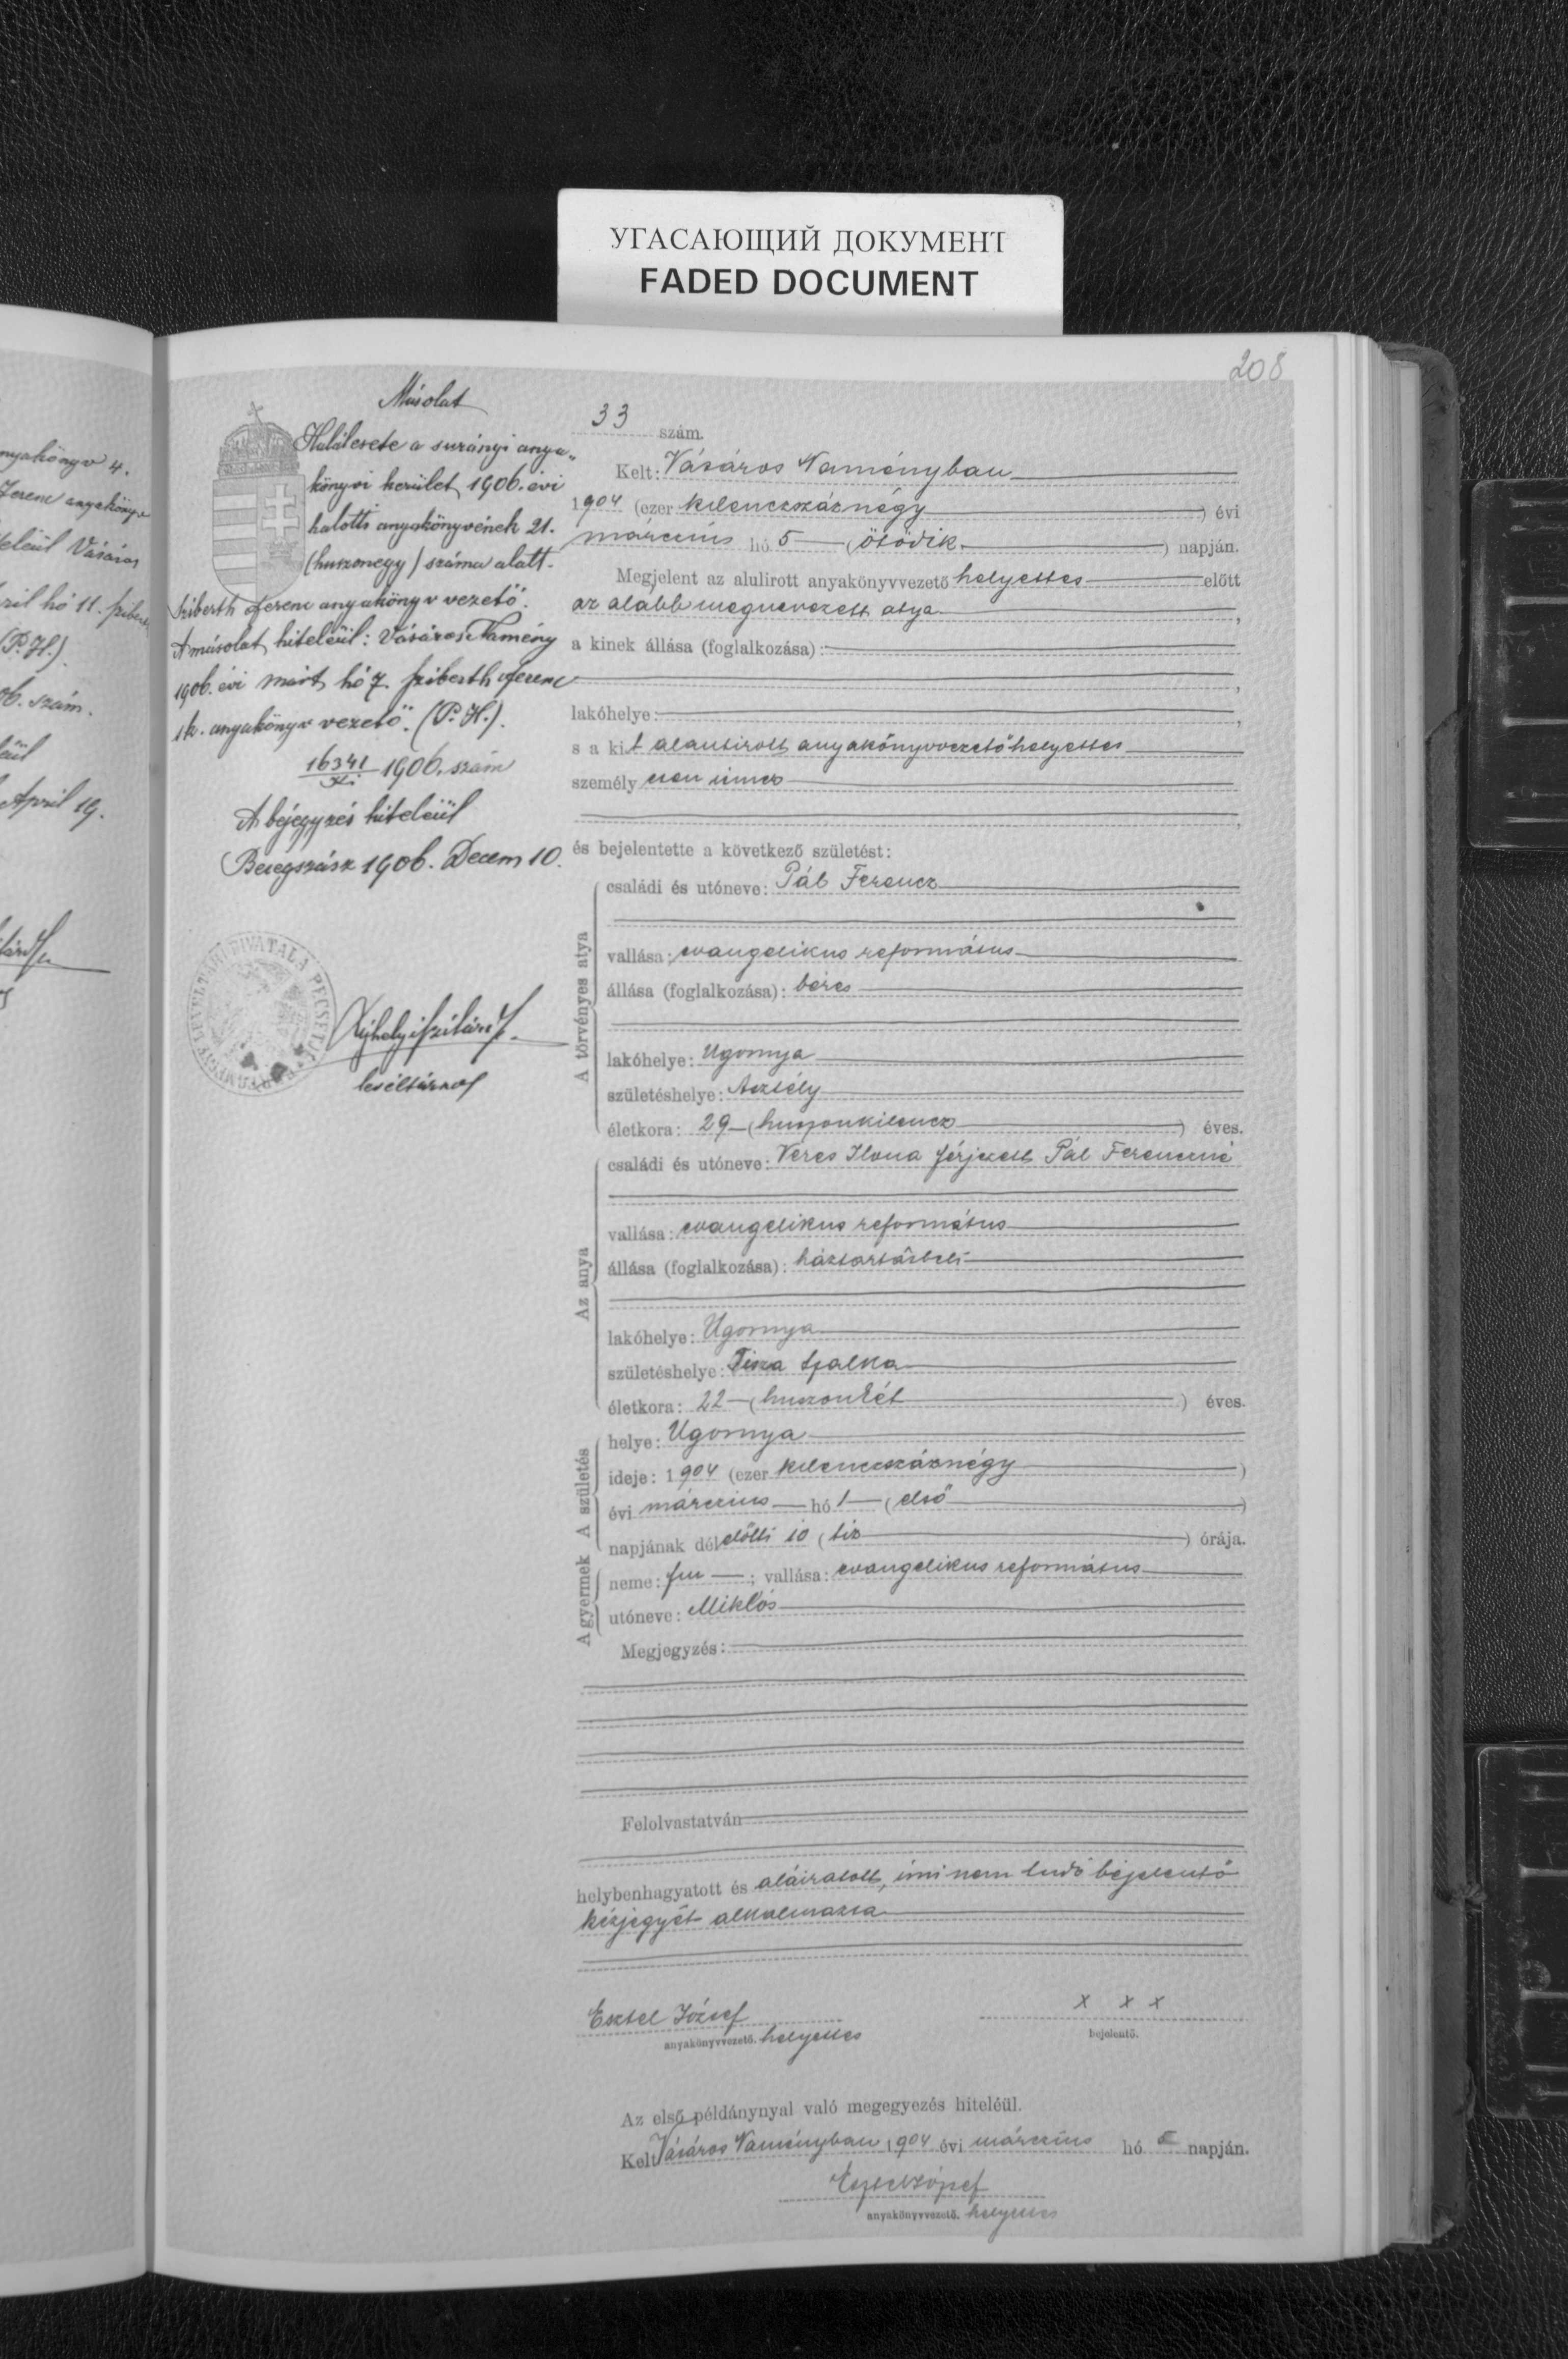 УГАСАЮЩИЙ ДОКУМЕНТ
FADED DOCUMENT
208
nyakönyv 4.
Ferenc anyakönyv
Vásáros
hó 11.
(P. H.)
szám.
April 19.
Másolat
Halálesete a surányi anya„
könyvi kerület 1906. évi
halotti anyakönyvének 21.
(huszonegy) száma alatt.
Sziberth Ferenc anyakönyv vezető.
A másolat hiteléül: Vásáros Namény
1906. évi márt hó 7. Sziberth Ferenc
sk. anyakönyv vezető. (P. H.).
16341 1906. szám
A bejegyzés hiteléül
Beregszász 1906. Decem 10.
33 szám.
Kelt: Vásáros Naményban
1904 (ezer kilenczszáznégy) évi
márczius hó 5 (ötödik) napján.
Megjelent az alulirott anyakönyvvezető helyettes előtt
az alább megnevezett atya
a kinek állása (foglalkozása):
lakóhelye:
s a kit alantirott anyakönyvvezetőhelyettes
személyesen ismer
és bejelentette a következő születést:
A törvényes atya
családi és utóneve: Pál Ferencz
vallása: evangelikus református
állása (foglalkozása): béres
lakóhelye: Ugornya
születéshelye: Asztély
életkora: 29 (huszonkilencz) éves.
Az anya
családi és utóneve: Veres Ilona férjezett Pál Ferenczné
vallása: evangelikus református
állása (foglalkozása): háztartásbeli
lakóhelye: Ugornya
születéshelye: Tisza Szalka
életkora: 22 (huszonkét) éves.
A születés
helye: Ugornya
ideje: 1904 (ezer kilenczszáznégy)
évi márczius hó 1 (első)
napjának délelőtti 10 (tiz) órája.
A gyermek
neme: fiu; vallása: evangelikus református
utóneve: Miklós
Megjegyzés:
Felolvastatván
helybenhagyatott és aláiratott, irni nem tudó bejelentő
kézjegyét alkalmazta
Esztel József x x x
anyakönyvvezető. helyettes bejelentő.
Az első példánynyal való megegyezés hiteléül.
Kelt Vásáros Naményban 1904 évi márczius hó 5 napján.
Esztel József
anyakönyvvezető. helyettes